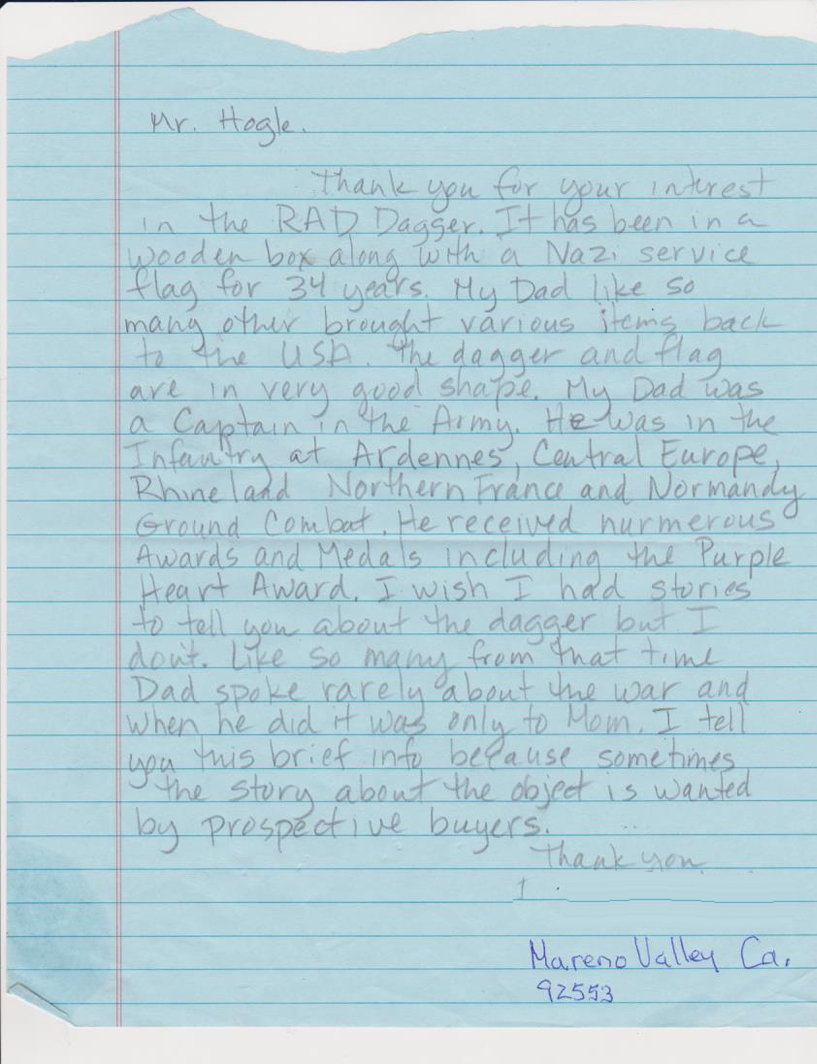 Mr. Hogle.
Thank you for your interest
in the RAD Dagger. It has been in a
wooden box along with a Nazi service
flag for 34 years. My Dad like so
many other brought various items back
to the USA. The dagger and flag
are in very good shape. My Dad was
a Captain in the Army. He was in the
Infantry at Ardennes, Central Europe,
Rhineland Northern France and Normandy
Ground Combat. He received nurmerous
Awards and Medals including the Purple
Heart Award. I wish I had stories
to tell you about the dagger but I
dont. Like so many from that time
Dad spoke rarely about the war and
when he did it was only to Mom. I tell
you this brief info because sometimes
the story about the object is wanted
by prospective buyers.
Thank you
Mareno Valley Ca.
92553